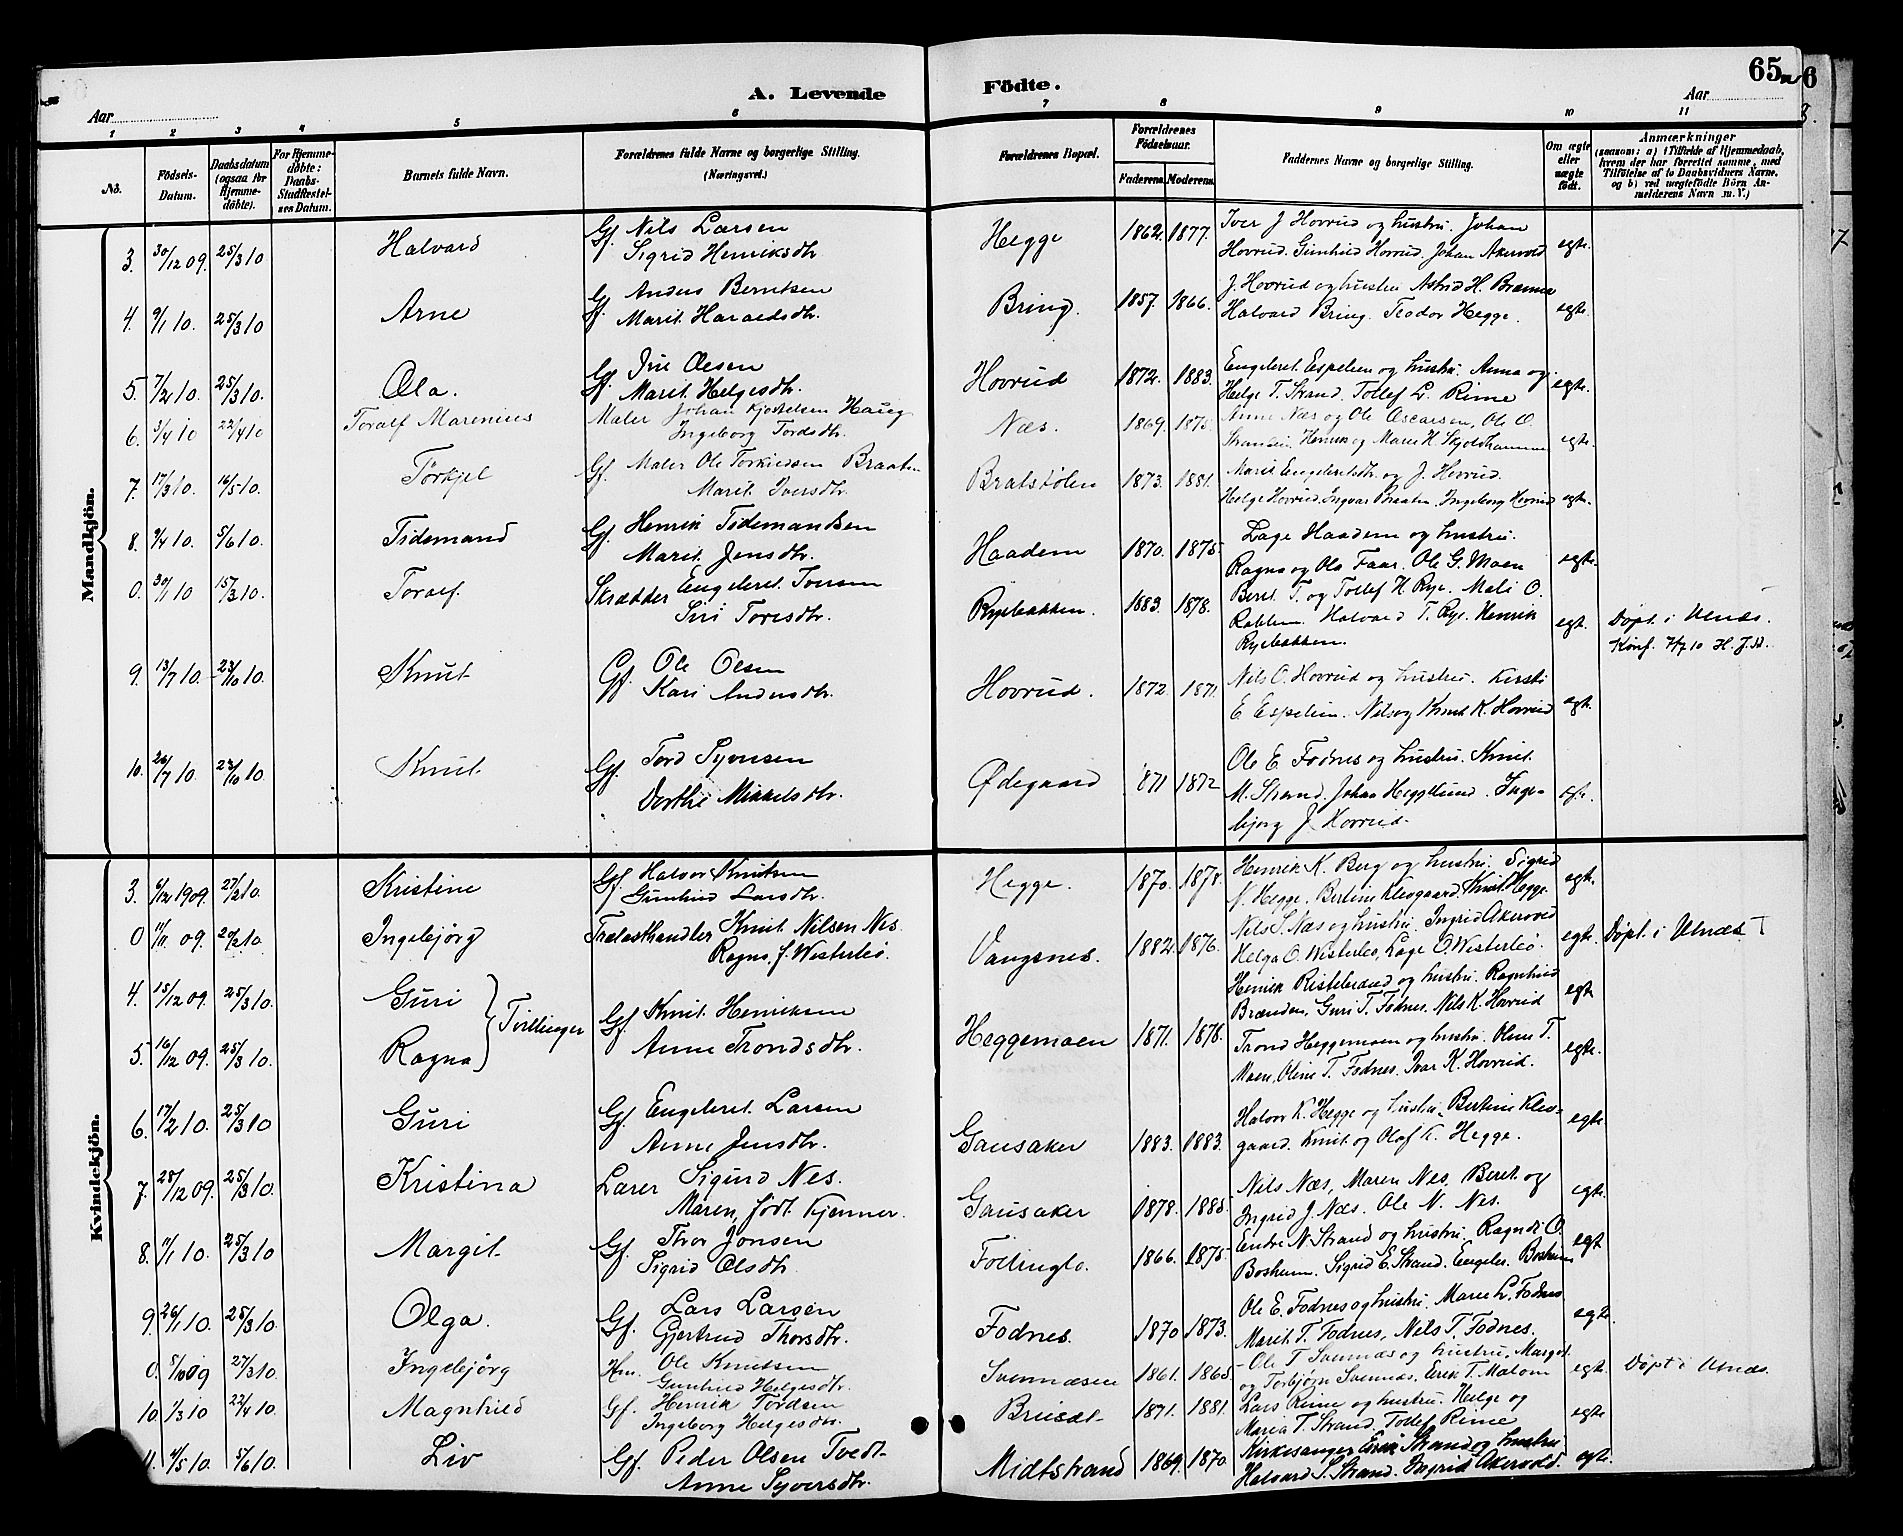 65
6
A. Levende Födte.
Aar
Aar
3.
1 2 3 4 5 6 7 8 9 10 11
No.
Födsels-Datum.
Daabsdatum (ogsaa for Hjemmedöbte).
For Hjemmedöbte: Daabs-Stadfæstelses Datum.
Barnets fulde Navn.
Forældrenes fulde Navne og borgerlige Stilling. (Næringsvei.)
Forældrenes Bopæl.
Forældrenes Födselsaar.
Faderens. Moderens.
Faddernes Navne og borgerlige Stilling.
Om ægte eller uægte födt.
Anmærkninger
(saasom: a) i Tilfælde af Hjemmedaab, hvem der har forrettet samme, med Tilföielse af to Daabsvidners Navne, og b) ved uægtefödte Börn Anmelderens Navn m. V.)
Mandkjön.
3. 30/12 09. 25/3 10 Halvard Gf. Nils Larsen Hegge 1862. 1877. Iver J Hovrud og hustru. Johan egte.
Sigrid Henriksdtr Hovrud. Gunhild Hovrud. Johan Akervold
4. 9/1 10. 25/3 10 Arne Gf. Anders Berntsen Bring. 1857. 1866. J. Hovrud og hustru Astrid H. egte.
Marit Haraldsdtr. Halvard Bring. Teodor Hegge.
5. 7/2 10. 25/3 10. Ola. Gf. Olesen Hovrud 1872. 1883. Engebret Espelien og hustru. Anna og egte.
Marit Helgesdtr. Helge T. Strand. Tollef L. Rime
6. 3/4 10 22/4 10 Toralf Marenius Maler Johan Kjostelsen Haug Næs. 1869. 1875. Anne Næs og Ole Oscarsen, Ole O. egte.
Ingeborg Tordsdtr. Henrik og Maren H. Skjoldhammer
7. 17/3 10. 16/5 10. Torkjel Gf. Maler Ole Torkildsen Braaten Bratstølen 1873. 1881. Marit Engebretsdtr. og J. Hovrud. egte.
Marit Iversdtr. Helge Hovrud. Ingvar Braaten, Ingeborg Hovrud
8. 9/4 10. 5/6 10. Tidemand Gf. Henrik Tidemandsen Haadem 1870. 1875. Lage Haadem og hustru. egte.
Marit Jensdtr. Ragna og Ola Faar. Ole G. Moen
0. 30/1 10 15/3 10. Toralf. Skrædder Engebret Tonsen Ryebakken. 1883. 1878. Beret T. og Tollef H Rye. Mali O. egte.
Siri Toresdtr. Robben. Halvard T. Rye. Henrik Døpt i Ulnæs.
Ryebakken. Konf. 7/7 10 H. J. A.
9. 13/7 10. 23/10 10. Knut Gf. Ole Olsen Hovrud. 1872. 1871. Nils O. Hovrud og hustru. Kirsti egte.
Kari Andersdtr. E Espelien. Nils og Knut K. Hovrud
10. 26/7 10. 23/10 10. Knut Gf. Tord Syvrsen Ødegaard 1871 1872 Ole E. Fodnes og hustru. Knut egte.
Dorthe Mikkelsdtr. M. Strand. Johan Heggelund. Inge-
bjorg J Hovrud.
Kvindekjön.
3. 6/12 1909. 27/2 10. Kristine Gf. Halvor Knutsen Hegge. 1870. 1878. Henrik K. Berg og hustru. Sigrid egte.
Gunhild Larsdtr. N. Hegge. Bertine Klevgaard. Knut Hegge.
0 11/11 09. 20/2 10. Ingebjørg Trælasthandler Knut Nilsen Nes. Vangsnes. 1882. 1876. Nils S. Næs og hustru. Ingrid Akervold egte. Døpt i Ulnæs
Ragna, f. Westerleø. Helga O. Westerleø, Lage O. Westerleø.
4. 15/12 09. 25/3 10. Guri Tvillinger Gf. Knut Henriksen Heggemoen 1871. 1878. Henrik Ristebrand og hustru. Ragnhild egte
Brænden, Guri T. Fodnes. Nils K. Hovrud
5. 16/12 09. 25/3 10. Ragna Anne Trondsdtr. Trond Heggemoen og hustru. Oline T. egte.
Moen, Oline T. Fodnes. Ivar K. Hovrud.
6. 17/2 10. 25/3 10 Guri Gf. Engebret Larsen Gausaker 1883. 1883. Halvor K. Hegge og hustru. Bertine Klev- egte
Anne Jensdtr. gaard. Knut og Olaf K. Hegge.
7. 28/12 09. 25/3 10. Kristina Lærer Sigurd Nes. Gausaker 1878. 1885. Nils Næs, Maren Nes. Beret og egte.
Maren, født Kjenner. Ingrid J. Næs. Ole N. Nes.
8. 11/1 10. 25/3 10 Margit Gf. Thor Jonsen Føllinglo. 1866. 1875. Endre N. Strand og hustru. Ragndi O. egte
Sigrid Olsdtr. Boshum. Sigrid E. Strand. Engebr. Boshum
9. 26/1 10. 25/3 10. Olga. Gf. Lars Larsen Fodnes. 1870 1873. Ole E. Fodnes og hustru. Maren L. Fodnes egte.
Gjertrud Thorsdtr. Marit T. Fodnes, Nils T. Fodnes.
0. 5/10 09 27/3 10. Ingebjørg Hm. Ole Knutsen Svennæsen 1861. 1865. Ole T. Svennæs og hustru. Margit egte. Døpt i Ulnæs.
Gunhild Helgesdtr. og Torbjørn Svennæs. Erik T. Malom
10. 1/3 10 22/4 10 Magnhild Gf. Henrik Tordsen Briset 1871. 1881. Lars Rime og hustru. Helge og egte
Ingeborg Helgesdtr. Maria T. Strand. Tollef Rime
11. 4/5 10. 5/6 10. Liv Gf. Peder Olsen Tvedt Midtstrand 1869. 1870. Kirkesanger Erik Strand og hustru egte.
Anne Syversdtr. Halvard S. Strand. Ingrid Akervold.